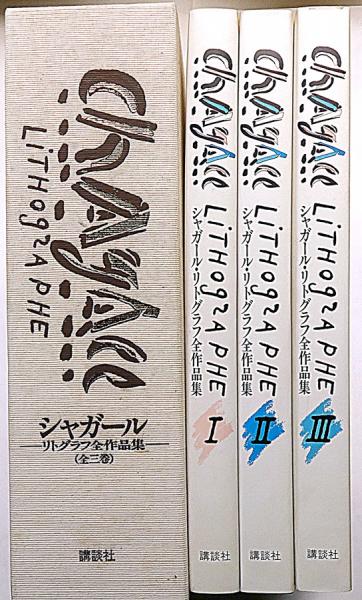 chAgAll
LiTHogRAPHE
シャガール
リトグラフ全作品集
(全三巻)
講談社
chAgAll LiTHogRAPHE
シャガール・リトグラフ全作品集
I
講談社
chAgAll LiTHogRAPHE
シャガール・リトグラフ全作品集
II
講談社
chAgAll LiTHogRAPHE
シャガール・リトグラフ全作品集
III
講談社